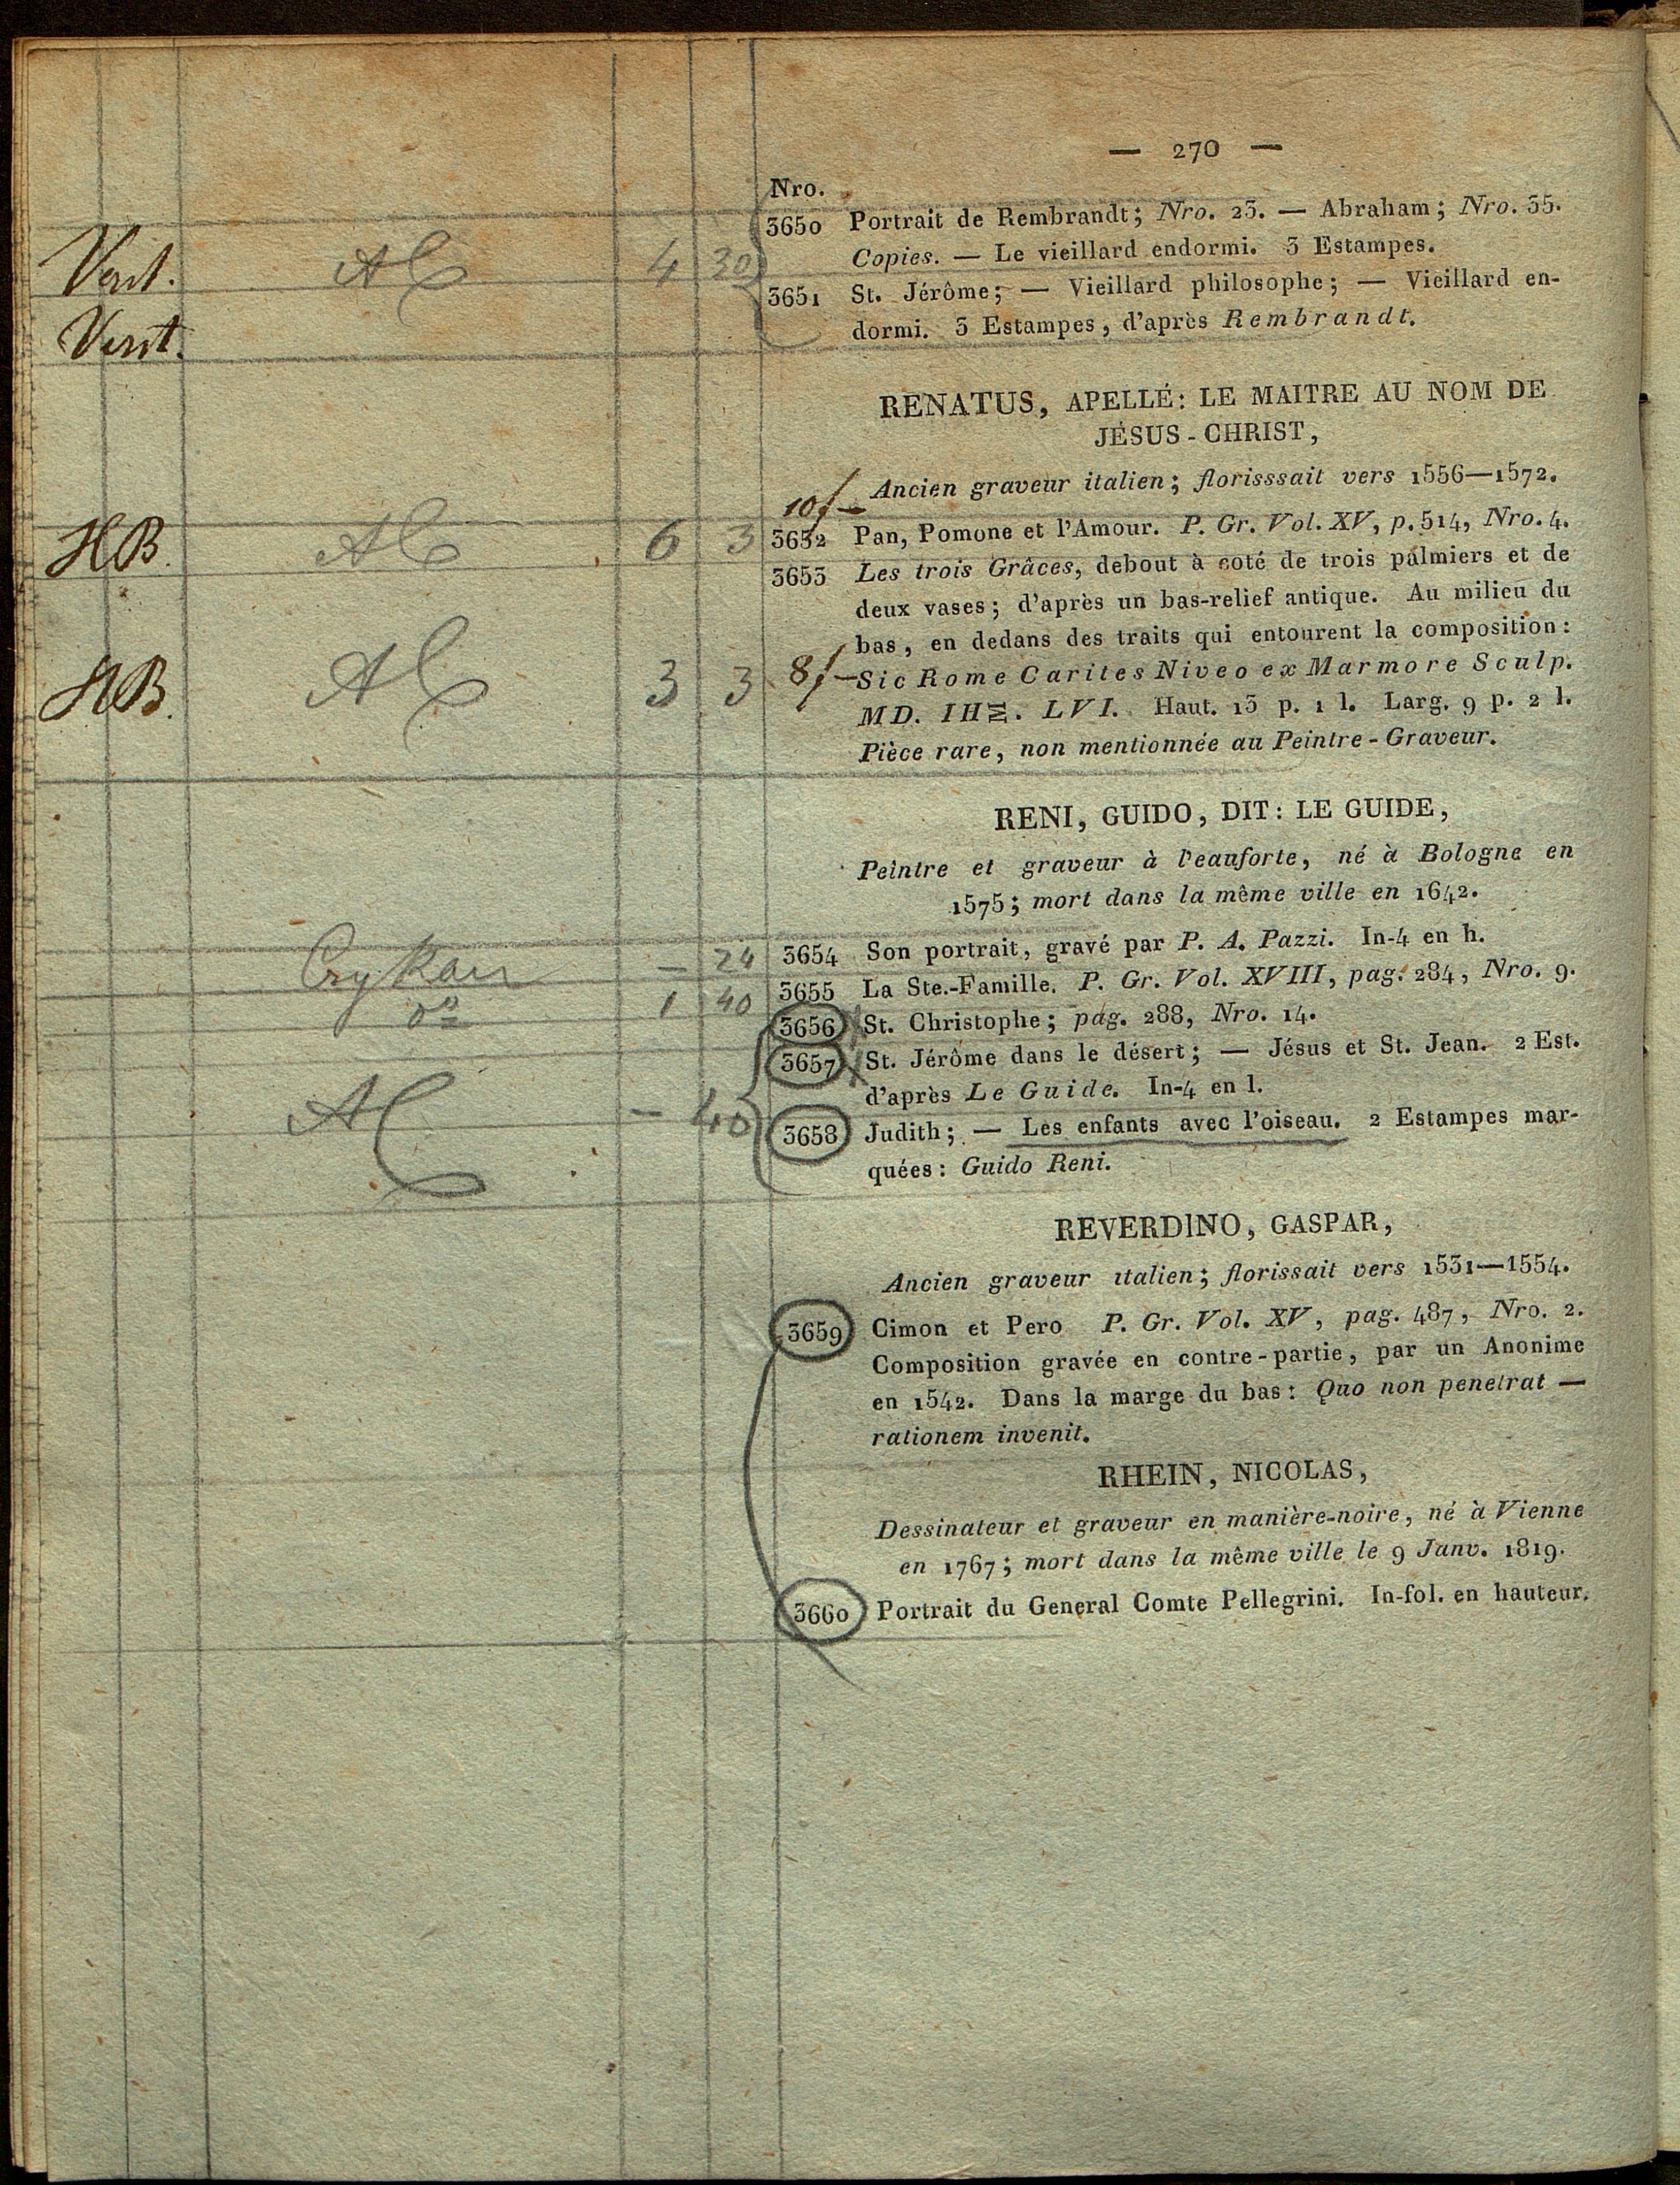 — 270 —
Nro.
3650 Portrait de Rembrandt; Nro. 23. — Abraham; Nro. 35.
Copies. — Le vieillard endormi. 3 Estampes.
4 30
3651 St. Jérôme; — Vieillard philosophe; — Vieillard en-
dormi. 3 Estampes, d'après Rembrandt.
RENATUS, APELLÉ: LE MAITRE AU NOM DE
JÉSUS-CHRIST,
Ancien graveur italien; florisssait vers 1556—1572.
10f —
HB. 6 3 3652 Pan, Pomone et l'Amour. P. Gr. Vol. XV, p. 514, Nro. 4.
3653 Les trois Grâces, debout à coté de trois palmiers et de
deux vases; d'après un bas-relief antique. Au milieu du
bas, en dedans des traits qui entourent la composition:
HB. 3 3 8f — Sic Rome Carites Niveo ex Marmore Sculp.
MD. IH. LVI. Haut. 13 p. 1 l. Larg. 9 p. 2 l.
Pièce rare, non mentionnée au Peintre-Graveur.
RENI, GUIDO, DIT: LE GUIDE,
Peintre et graveur à l'eauforte, né à Bologne en
1575; mort dans la même ville en 1642.
— 24 3654 Son portrait, gravé par P. A. Pazzi. In-4 en h.
1 40 3655 La Ste.-Famille. P. Gr. Vol. XVIII, pag. 284, Nro. 9.
3656 St. Christophe; pag. 288, Nro. 14.
3657 St. Jérôme dans le désert; — Jésus et St. Jean. 2 Est.
d'après Le Guide. In-4 en l.
— 40 3658 Judith; — Les enfants avec l'oiseau. 2 Estampes mar-
quées: Guido Reni.
REVERDINO, GASPAR,
Ancien graveur italien; florissait vers 1531—1554.
3659 Cimon et Pero P. Gr. Vol. XV, pag. 487, Nro. 2.
Composition gravée en contre-partie, par un Anonime
en 1542. Dans la marge du bas: Quo non penetrat —
rationem invenit.
RHEIN, NICOLAS,
Dessinateur et graveur en manière-noire, né à Vienne
en 1767; mort dans la même ville le 9 Janv. 1819.
3660 Portrait du General Comte Pellegrini. In-fol. en hauteur.